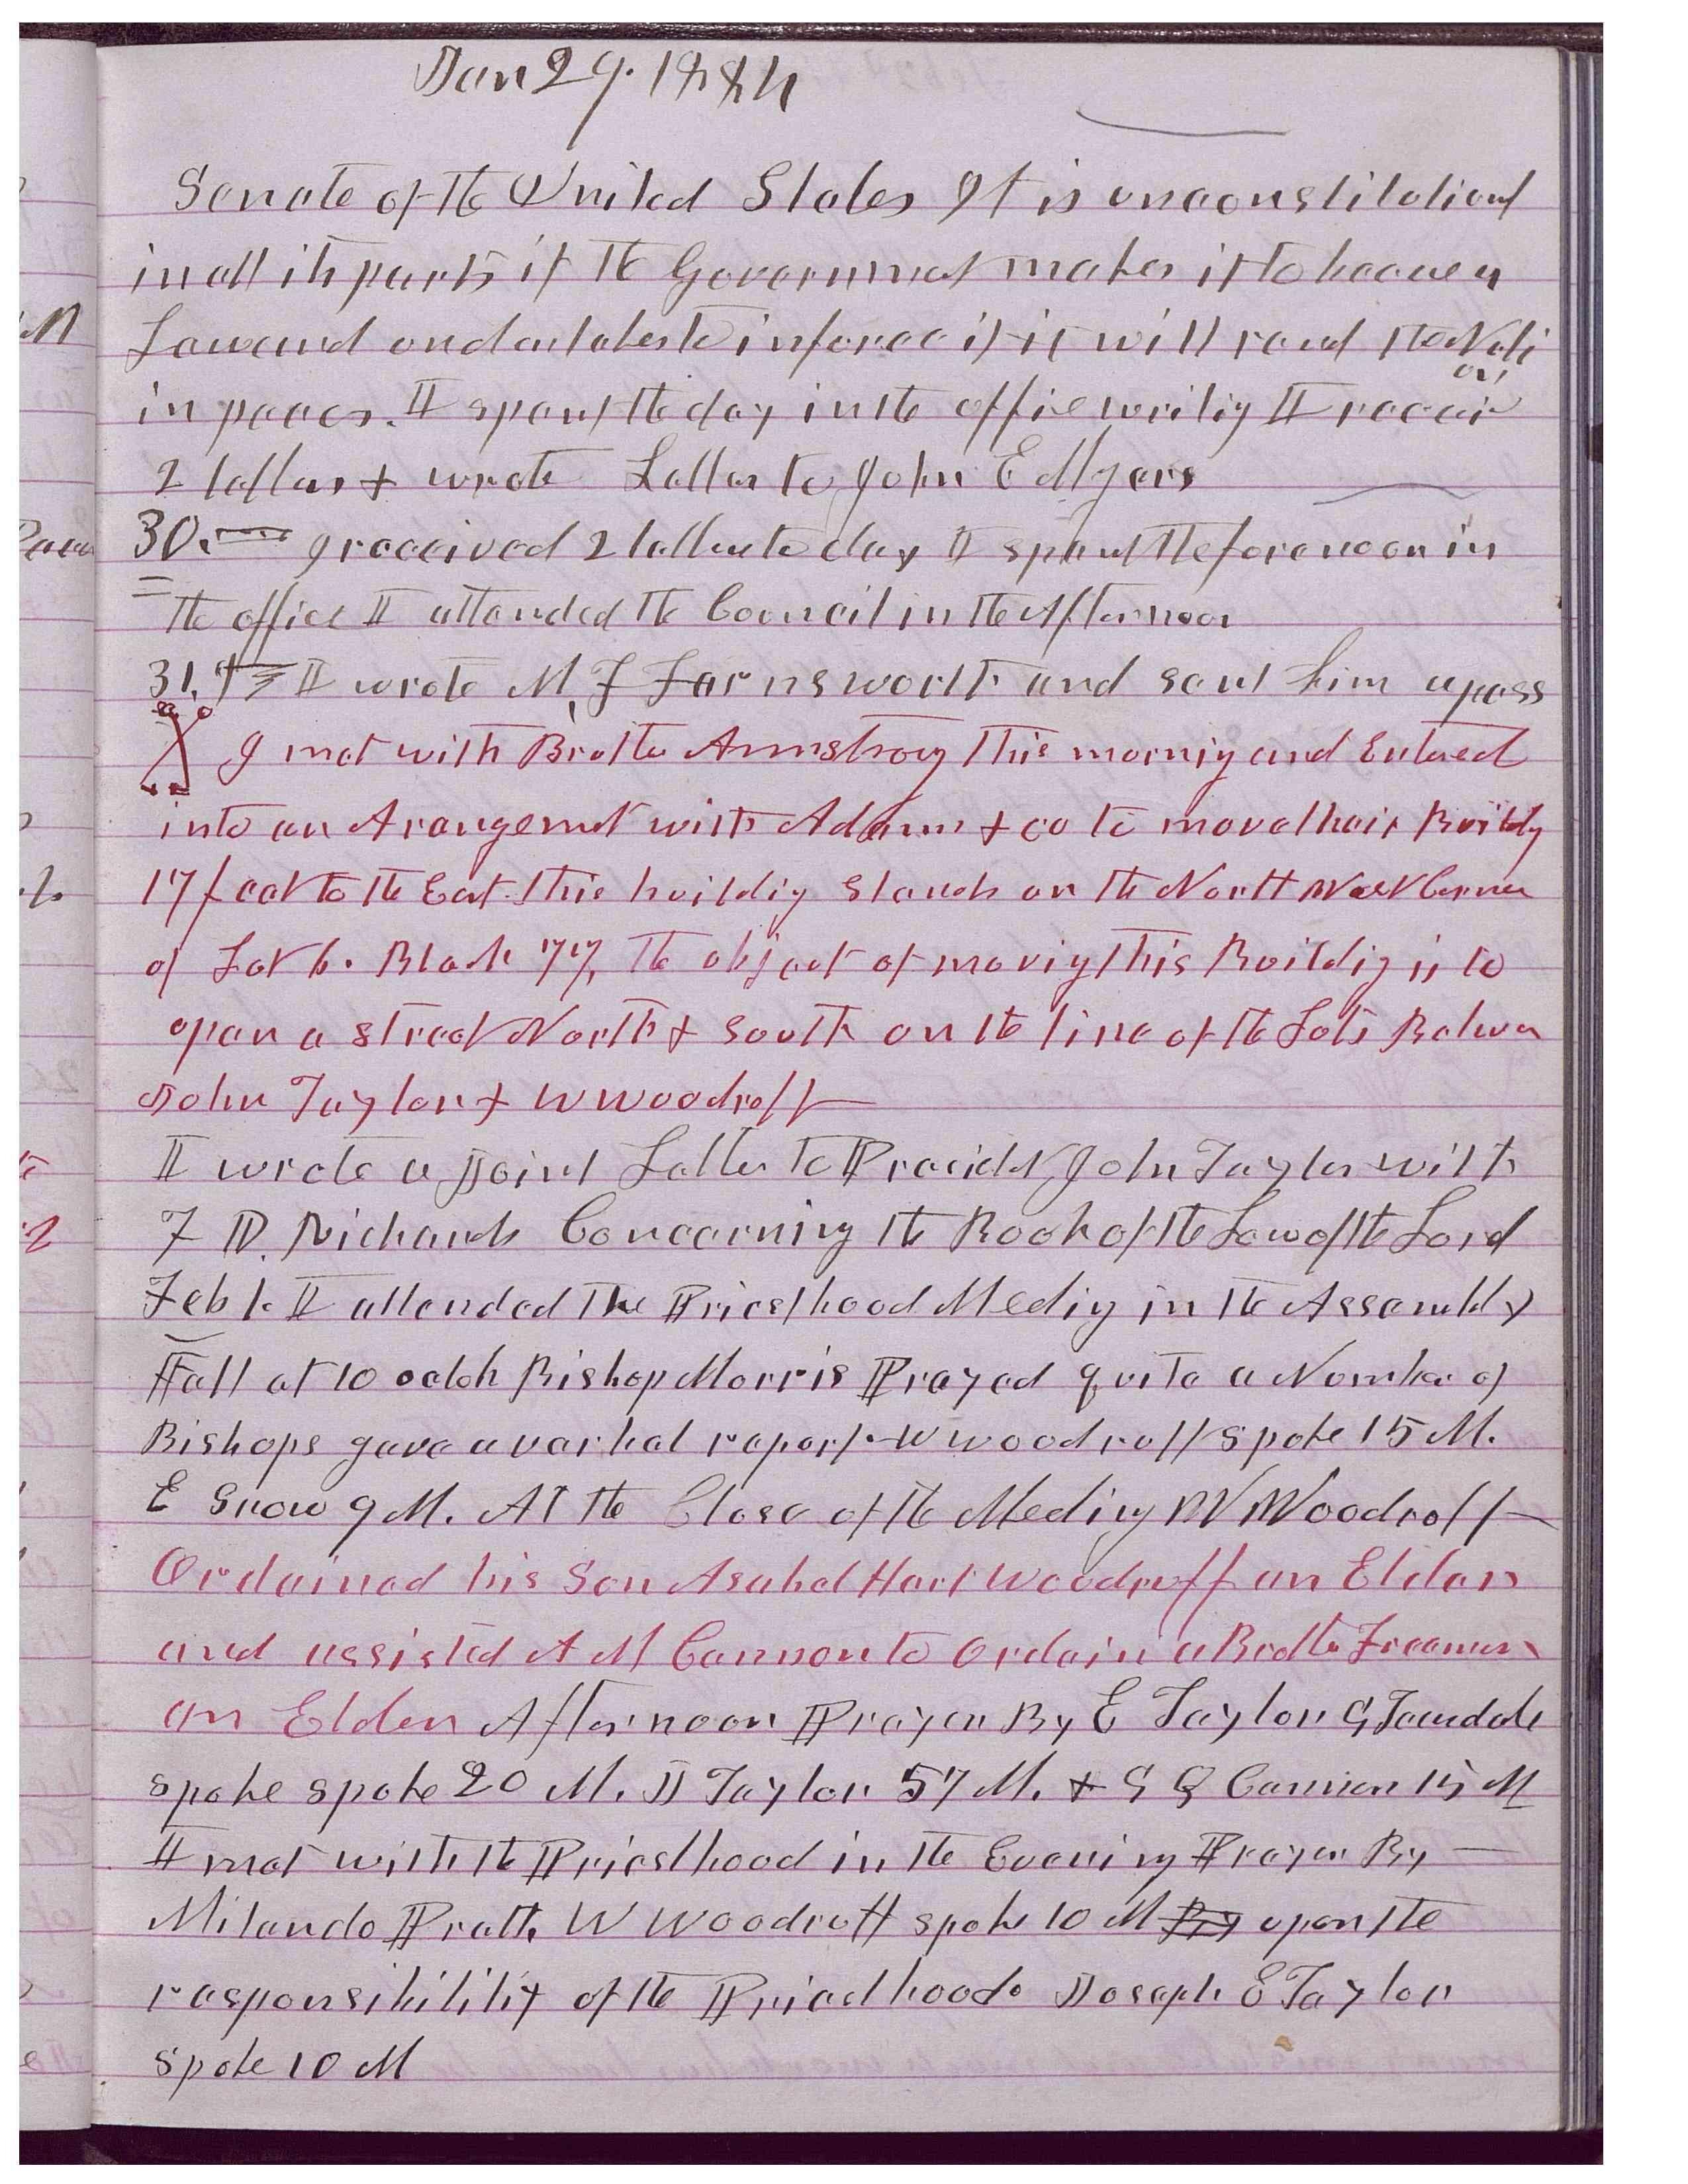 Jan 29. 1884
Senate of the United States It is unconstitutional
in all its parts if the Government makes it to become a
Law and undertakes to inforce it it will rend the Nati
on
in peaces. I spent the day in the office writing I receiv
2 letters & wrote Letter to John E Myers
30. I received 2 letters to day I spent the forenoon in
the office I attended the Council in the Afternoon
31, I wrote M, F Farnsworth and sent him a pass
I met with Brother Armstrong this morning and Entered
into an Arangement with Adams & co to move their Building
17 feet to the East. this building stands on the North West Corner
of Lot 6. Block 77, the object of moving this Building is to
open a street North & South on the line of the Lots Between
John Taylor & W Woodruff
I wrote a Joint Letter to Presidet John Taylor with
F D. Richards Concerning the Book of the Law of the Lord
Feb 1. I attended the Priesthood Meeting in the Assembly
Hall at 10 oclok Bishop Morris Prayed quite a Number of
Bishops gave a verbal report. W Woodruff spoke 15 M.
E Snow 9 M. At the Close of the Meeting W Woodruff
Ordained his Son Asahel Hart Woodruff an Elder
and assisted A M Cannon to Ordain a Brother Freeman
an Elder Afternoon Prayer By E Taylor G Teasdale
spoke spoke 20 M. J Taylor 57 M. & G Q Cannon 15 M
I met with the Priesthood in the Evening Prayer By
Milando Pratt. W Woodruff spoke 10 M By upon the
responsibility of the Priesthood. Joseph E Taylor
spoke 10 M